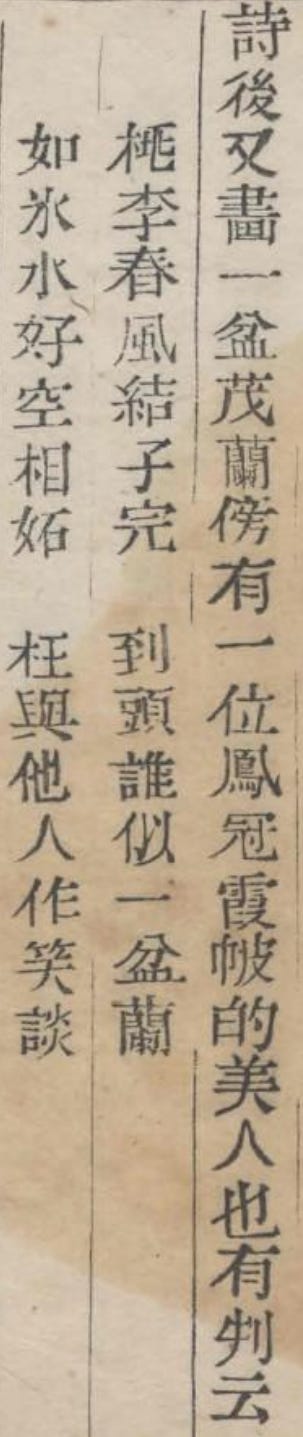 詩後又畫一盆茂蘭傍有一位鳳冠霞帔的美人也有判云
桃李春風結子完　到頭誰似一盆蘭
如氷水好空相妬　枉與他人作笑談